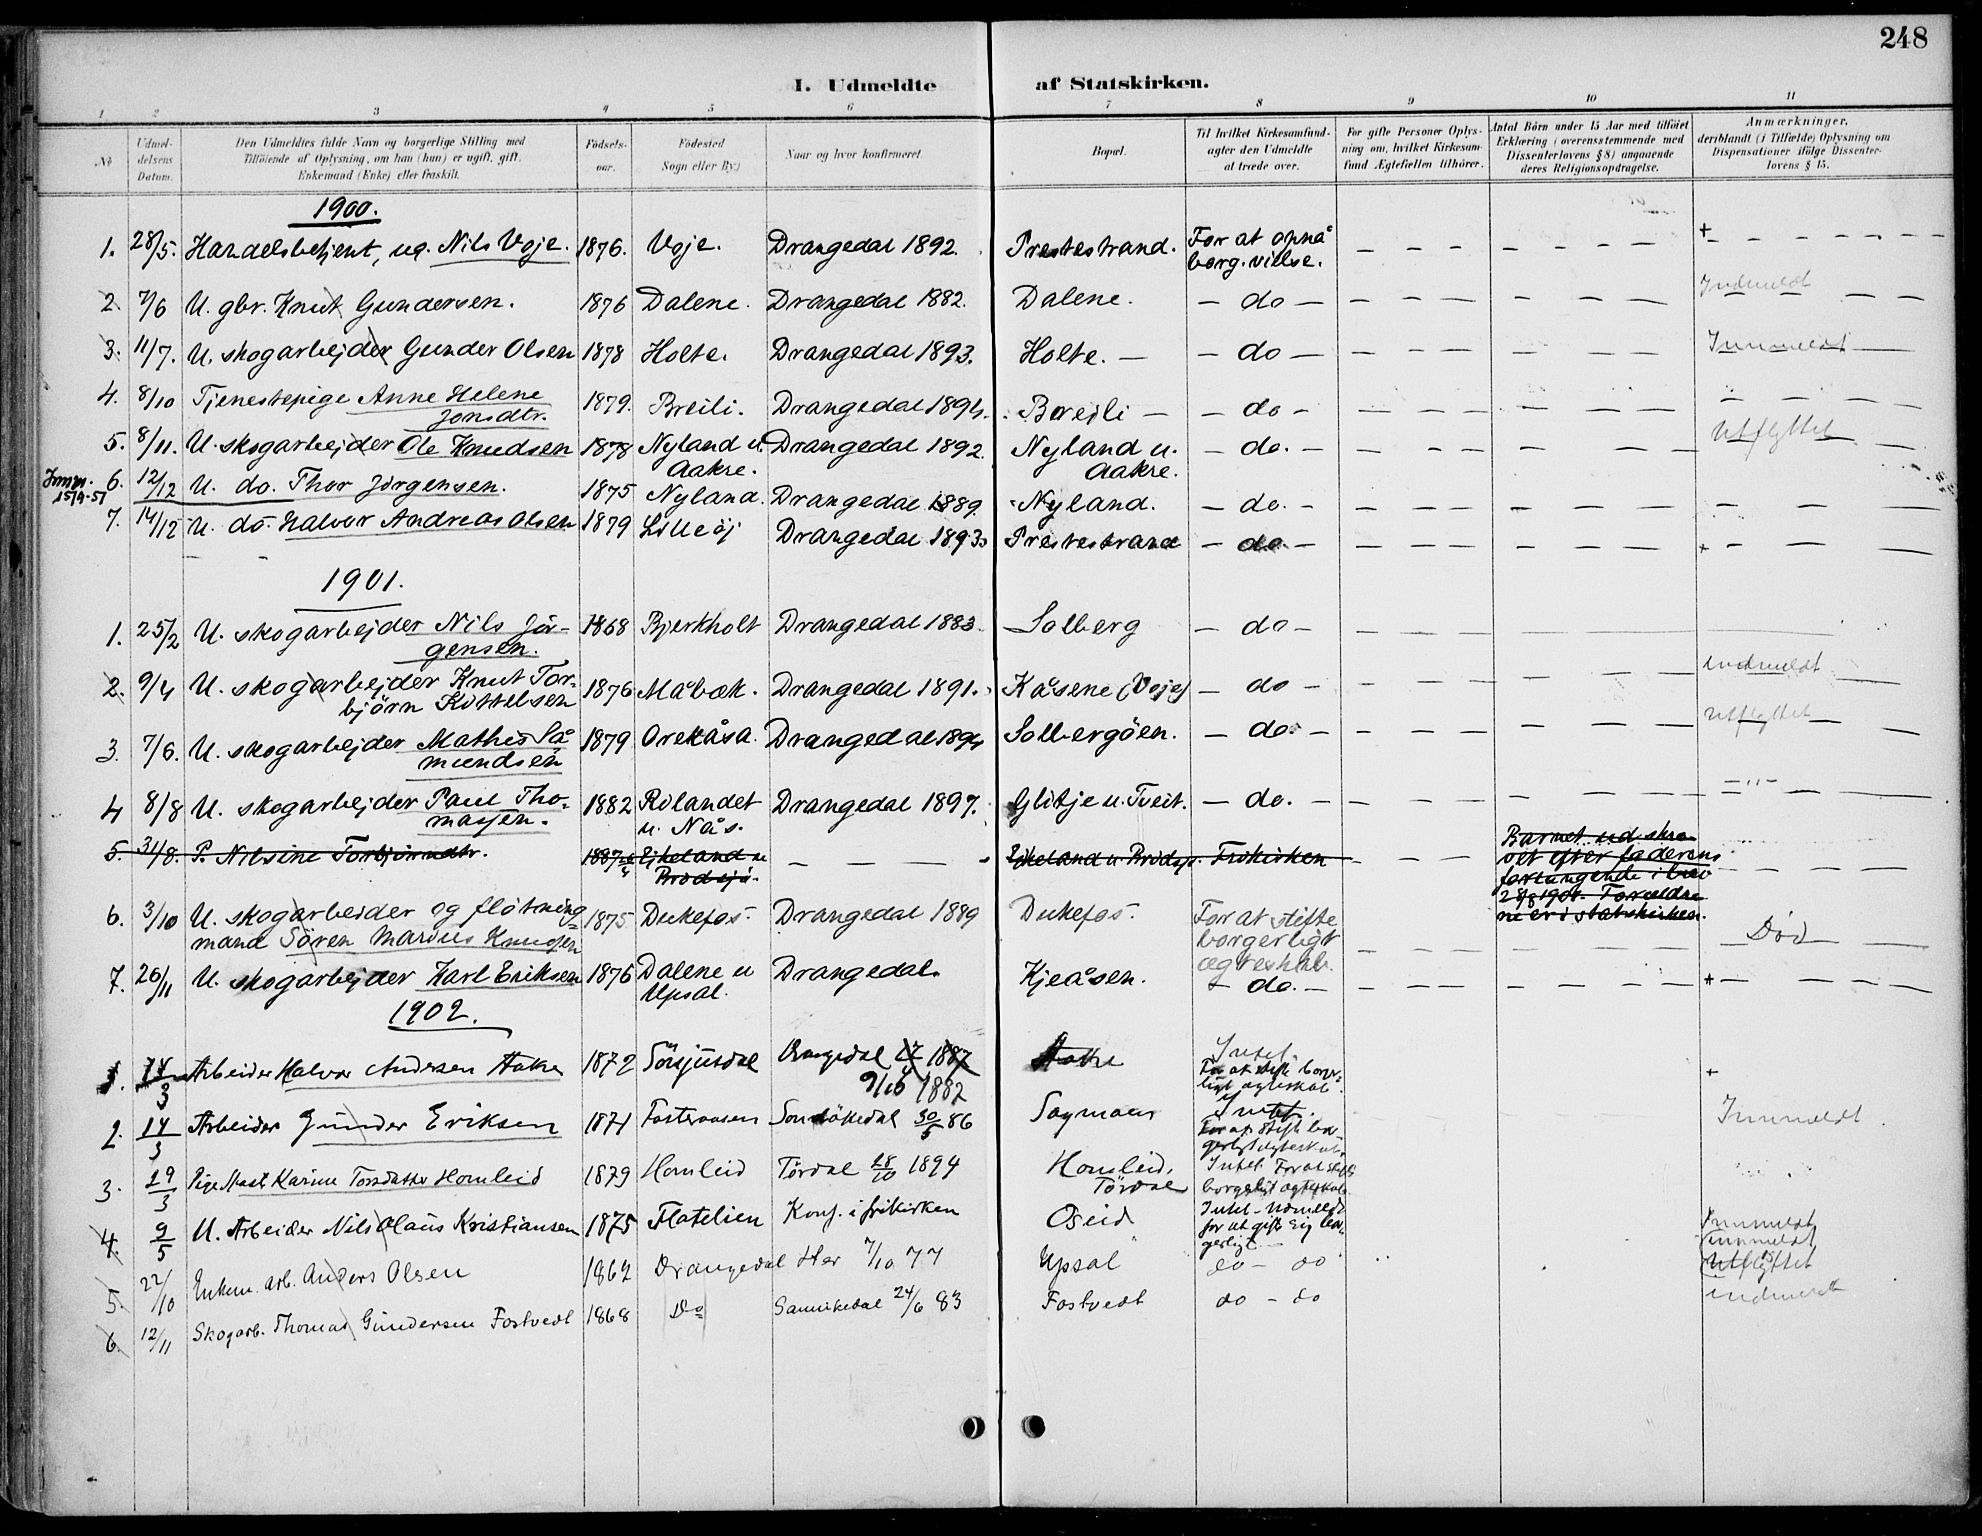 248
I. Udmeldte af Statskirken.
1 2 3 4 5 6 7 8 9 10 11
№ | Udmeldelsens Datum. | Den Udmeldtes fulde Navn og borgerlige Stilling med Tilföiende af Oplysning, om han (hun) er ugift, gift, Enkemand (Enke) eller fraskilt. | Födselsaar. | Födested Sogn eller By.) | Naar og hvor konfirmeret. | Bopæl. | Til hvilket Kirkesamfund agter den Udmeldte at træde over. | For gifte Personer Oplysning om, hvilket Kirkesamfund Ægtefællen tilhörer. | Antal Börn under 15 Aar med tilföiet Erklæring (overensstemmende med Dissenterlovens § 8) angaaende deres Religionsopdragelse. | Anmærkninger, deriblandt (i Tilfælde) Oplysning om Dispensationer ifölge Dissenterlovens § 15.
1900.
1. 28/5. Handelsbetjent, ug. Nils Voje. 1876. Voje. Drangedal 1892. Prestestrand. For at opnå borg. vielse. — — — — +
2. 7/6 U. gbr. Knut Gundersen. 1876 Dalene. Drangedal 1882. Dalene. — do — Indmeldt
3. 11/7. U. skogarbejder Gunder Olsen 1878 Holte. Drangedal 1893. Holte. — — do — Innmeldt
4. 8/10 Tjenestepige Anne Helene Jonsdtr. 1879. Breili. Drangedal 1894. Breili — — do —
5. 8/11. U. skogarbejder Ole Knudsen 1878 Nyland u. Aakre. Drangedal 1892. Nyland u. Aakre. — do. — Utflyttet
Innm. 15/9-51 6. 12/12 U. do. Thor Jörgensen. 1875 Nyland. Drangedal 1889. Nyland. — do. —
7. 14/12 U. do. Halvor Andreas Olsen 1879 Lilleöj Drangedal 1893. Prestestrand — do. — +
1901.
1. 25/2 U. skogarbejder Nils Jörgensen. 1868 Bjerkholt Drangedal 1883. Solberg — do —
2. 9/4 U. skogarbejder Knut Torbjörn Kittelsen 1876 Måbæk. Drangedal 1891. Kåsene (Voje) — do — indmeldt
3. 7/6. U. skogarbejder Mathis Såmundsen 1879 Orekåsa. Drangedal 1894 Solbergöen. — do. — Utflyttet
4 8/8 U. skogarbejder Paul Thomasen. 1882 Rölandet u. Nås. Drangedal 1897. Glitje u. Tveit. — do. — — " —
5. 31/8. P. Nilsine Torbjörnsdtr. 1887 Eikeland u Brödsjö. — — — Eikeland u. Brödsjö. Frikirken — — — Barnet udskrevet efter faderens forlangende i brev 28/8 1901. Forældrene er i statskirken.
6. 3/10 U. skogarbeider og flötningmand Sören Marius Knudsen 1875 Dukefos. Drangedal 1889 Dukefos. For at stifte borgerligt ægteskab. Död
7. 26/11 U. skogarbejder Karl Eriksen 1876 Dalene u Upsal. Drangedal. Kjeåsen. — do. — +
1902.
1. 14/3 Arbeider Halvor Andersen Aakre 1872 Sörsjusdal Drangedal 1887 9/10 1882 Aakre Intet. For at stifte borgerligt ægteskab. +
2. 14/3 Arbeider Gunder Eriksen 1871 Fosteraasen Sandökedal 30/5 86 Intet. For at stifte borgerligt ægteskab. Innmeldt
3. 19/3 Pige Mast Karine Torsdatter Homleid 1879 Homleid Tördal 28/10 1894 Homleid, Tördal Intet. For at stifte borgerligt ægteskab
4. 9/5 U. Arbeider Nils Olaus Kristiansen 1875 Flatelien Konf. i frikirken Oseid Intet — Udmeldt for at gifte sig borgerligt. Innmeldt
5. 22/10 Enkem. arb. Anders Olsen 1862 Drangedal Her 7/10 77 Upsal do — do Utflyttet
6. 12/11 Skogarb. Thomas Gundersen Fostvedt 1868 Do Sannikedal 24/6 83 Fostvedt do — do indmeldt